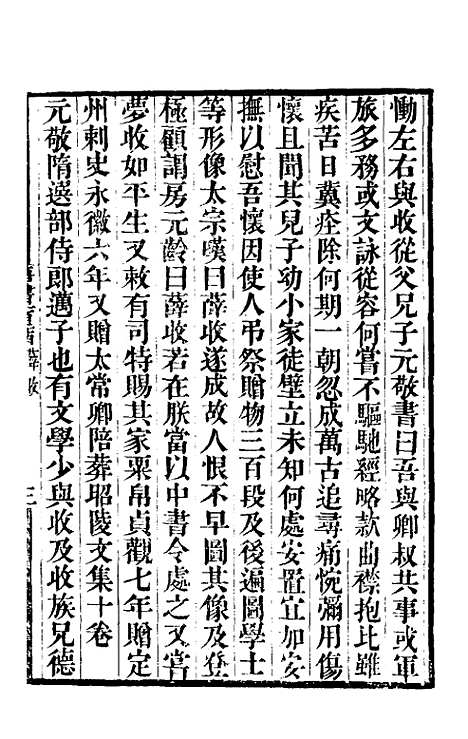 慟左右與收從父兄子元敬書曰吾與卿叔共事或軍
旅多務或文詠從容何嘗不驅馳經略款曲襟抱比雖
疾苦日冀痊除何期一朝忽成萬古追尋痛惋彌用傷
懷且聞其兒子幼小家徒壁立未知何處安置宜加安
撫以慰吾懷因使人弔祭贈物三百段及後遍圖學士
等形像太宗嘆曰薛收遂成故人恨不早圖其像及登
極顧謂房元齡曰薛收若在朕當以中書令處之又嘗
夢收如平生又敕有司特賜其家粟帛貞觀七年贈定
州刺史永徽六年又贈太常卿陪葬昭陵文集十卷
元敬隋選部侍郎邁子也有文學少與收及收族兄德